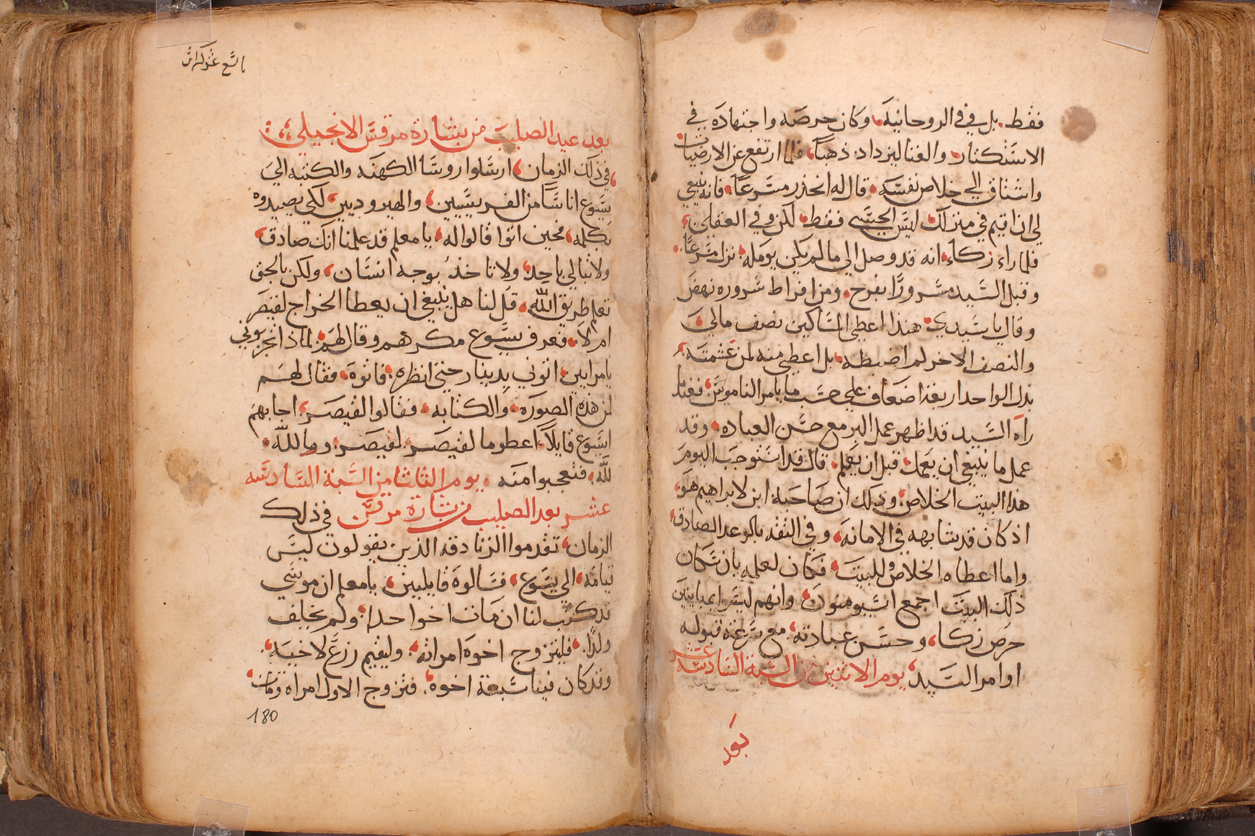 فقط. بل وفي الروحانيه، وكان حرصه واجتهاده في
الاستكثار والغنا ليزداد ذهباً، فلما ارتفع عن الارضيات
واشتاق الي خلاص نفسه، قال له انحدر مسرعاً، فانه ينبغي
لي ان اقيم في منزلك، ليس الحسي فقط، لكن وفي العقلي،
فلما راء زكاء، انه قد وصل الي ما لم يكن يومله، نزل مسرعاً،
وقبل السيد مسروراً بفرح، ومن افراط سروره نهض
وقال يا سيدي، هنذا اعطي المساكين نصف مالي،
والنصف الاخر لم اضبطه، بل اعطي منه لمن غشمته،
بدل الواحد اربعة اضعاف علي حسب ما يامر الناموس، فعند
راه السيد قد اظهر عمل البر مع حسن العباده، وقد
عمل ما ينبغي ان يعمل، قبل ان يعلم، قال قد استوجب اليوم
هذا البيت الخلاص، وذلك ان صاحبه ابن لابراهيم هو،
اذ كان قد شابهه في الامانه، وفي الثقه بالوعد الصادق،
واما اعطاه الخلاص للبيت، فكان لعلمه بان سكان
ذلك البيت اجمع اسيومنون، وانهم ليسرا بمباينين
حرص زكا، وحسن عبادته، مع سرعة قبوله
اوامر السيد، يوم الاثنين من السبة السادسة عشر
بعد
تاسع عشر كراس
بعد عيد الصليب من بشارة مرقس الانجيلي
في ذلك الزمان، ارسلوا روسا الكهنه والكتبه الي
يسوع اناسا من الفريسيين، والهيروديين، لكي يصيدوه
بكلمه، فحين اتوا قالوا له، يا معلم قد علمنا انك صادق،
ولا تبالي باحد، ولا تاخذ بوجه انسان، ولكن بالحق
تعلم طريق الله، قل لنا هل ينبغي ان يعطا الخراج لقيصر
ام لا، فعرف يسوع مكرهم وقال لهم، لماذا تجربوني
يا مرايين، اتوني بدينار حتي انظره، فاتوه، فقال لهم
لمن هذه الصوره، والكتابه، فقالوا لقيصر، اجابهم
ايسوع قايلاً، اعطوا ما لقيصر، لقيصر، وما لله،
لله، فتعجبوا منه، يوم الثلثا من السبة السادسه
عشر بعد الصليب من بشارة مرقس، في ذلك
الزمان، تقدموا الزنادقه الذين يقولون ليس
قيامه، الي يسوع، فسالوه قايلين، يا معلم ان موسي
قد كتب لنا ان مات اخوا احد، ولم يخلف
ولداً، فليتزوج اخوه امراته، وليقيم زرع لاخيه،
وقد كان فينا سبعة اخوه، فتزوج الاول امراه ومات،
180